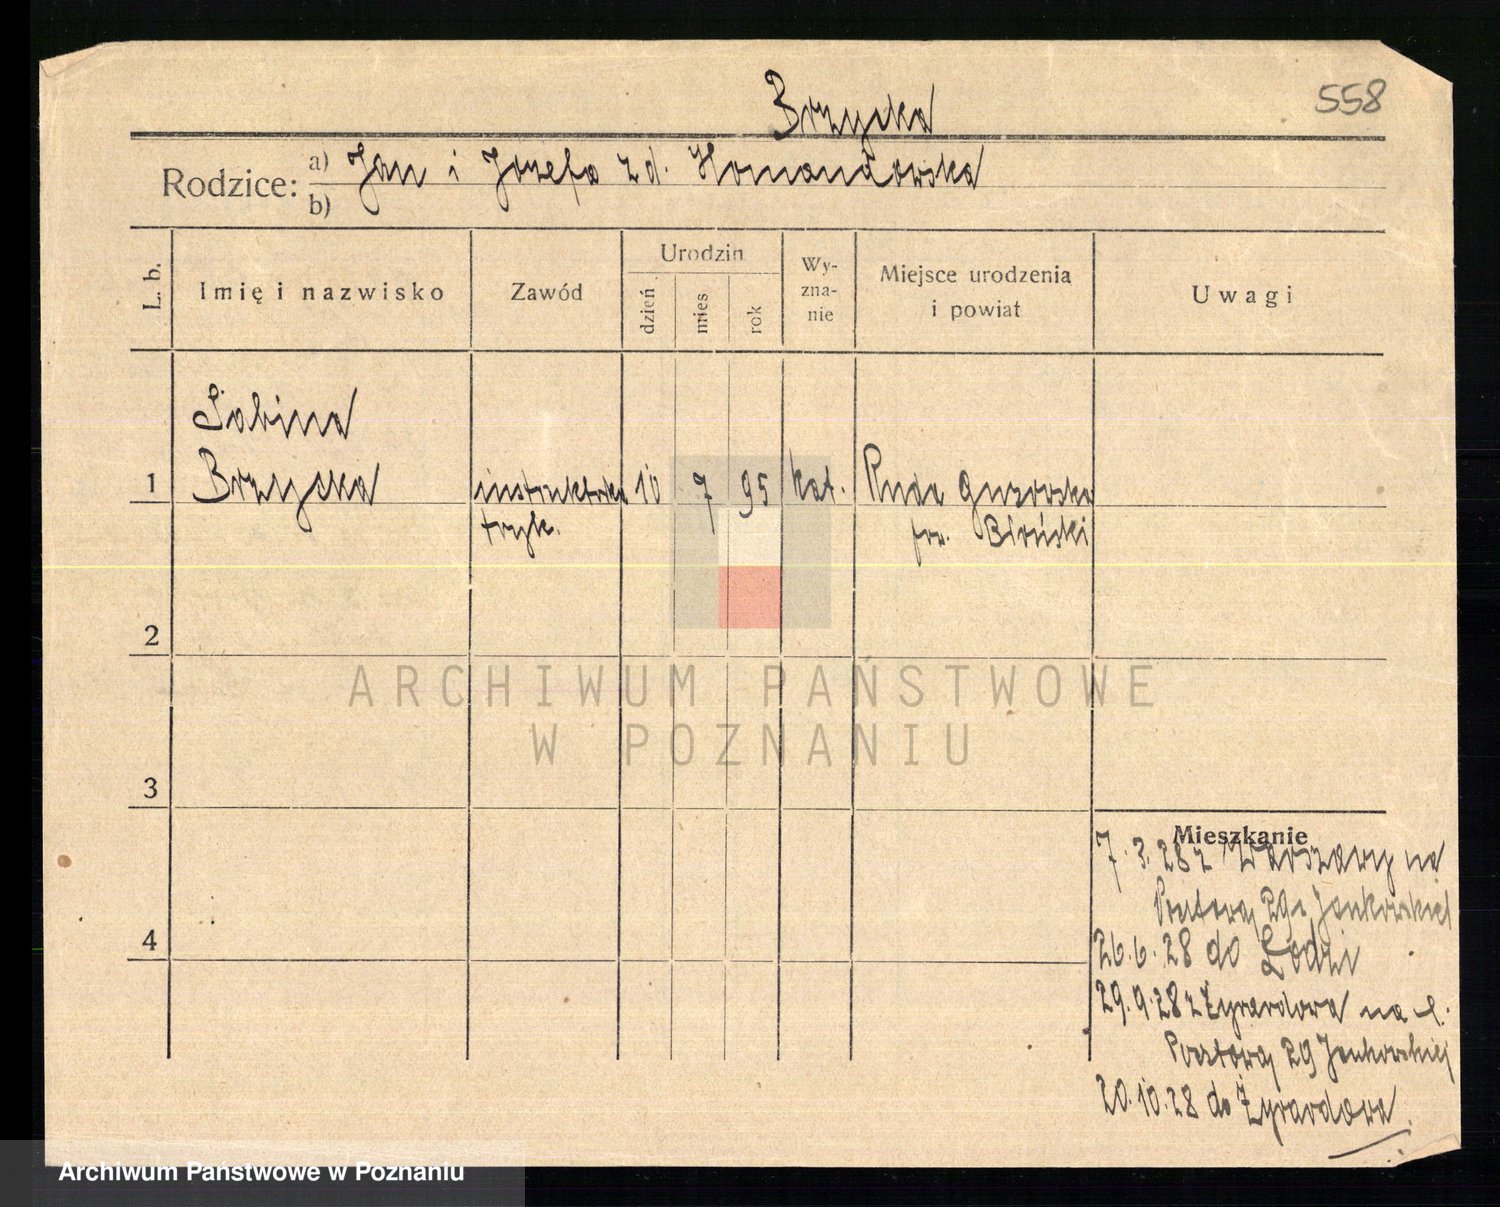 558
Brzyska
Rodzice: a) Jan i Józefa z d. Homanďowska
b)
L. b.
Imię i nazwisko
Zawód
Urodzin
dzień
mies
rok
Wy-
zna-
nie
Miejsce urodzenia
i powiat
Uwagi
Sabina
1 Brzyska instruktorka 10 7 95 kat. Ruda Guzowska
tryk. pow. Błoński
2
ARCHIWUM PAŃSTWOWE
W POZNANIU
3
Mieszkanie
7.3.28 z Warszawy na
Pocztową 29 Jankowskiej
4
26.6.28 do Łodzi
29.9.28 z Żyrardowa na
Pocztową 29 Jankowskiej
20.10.28 do Żyrardowa
Archiwum Państwowe w Poznaniu